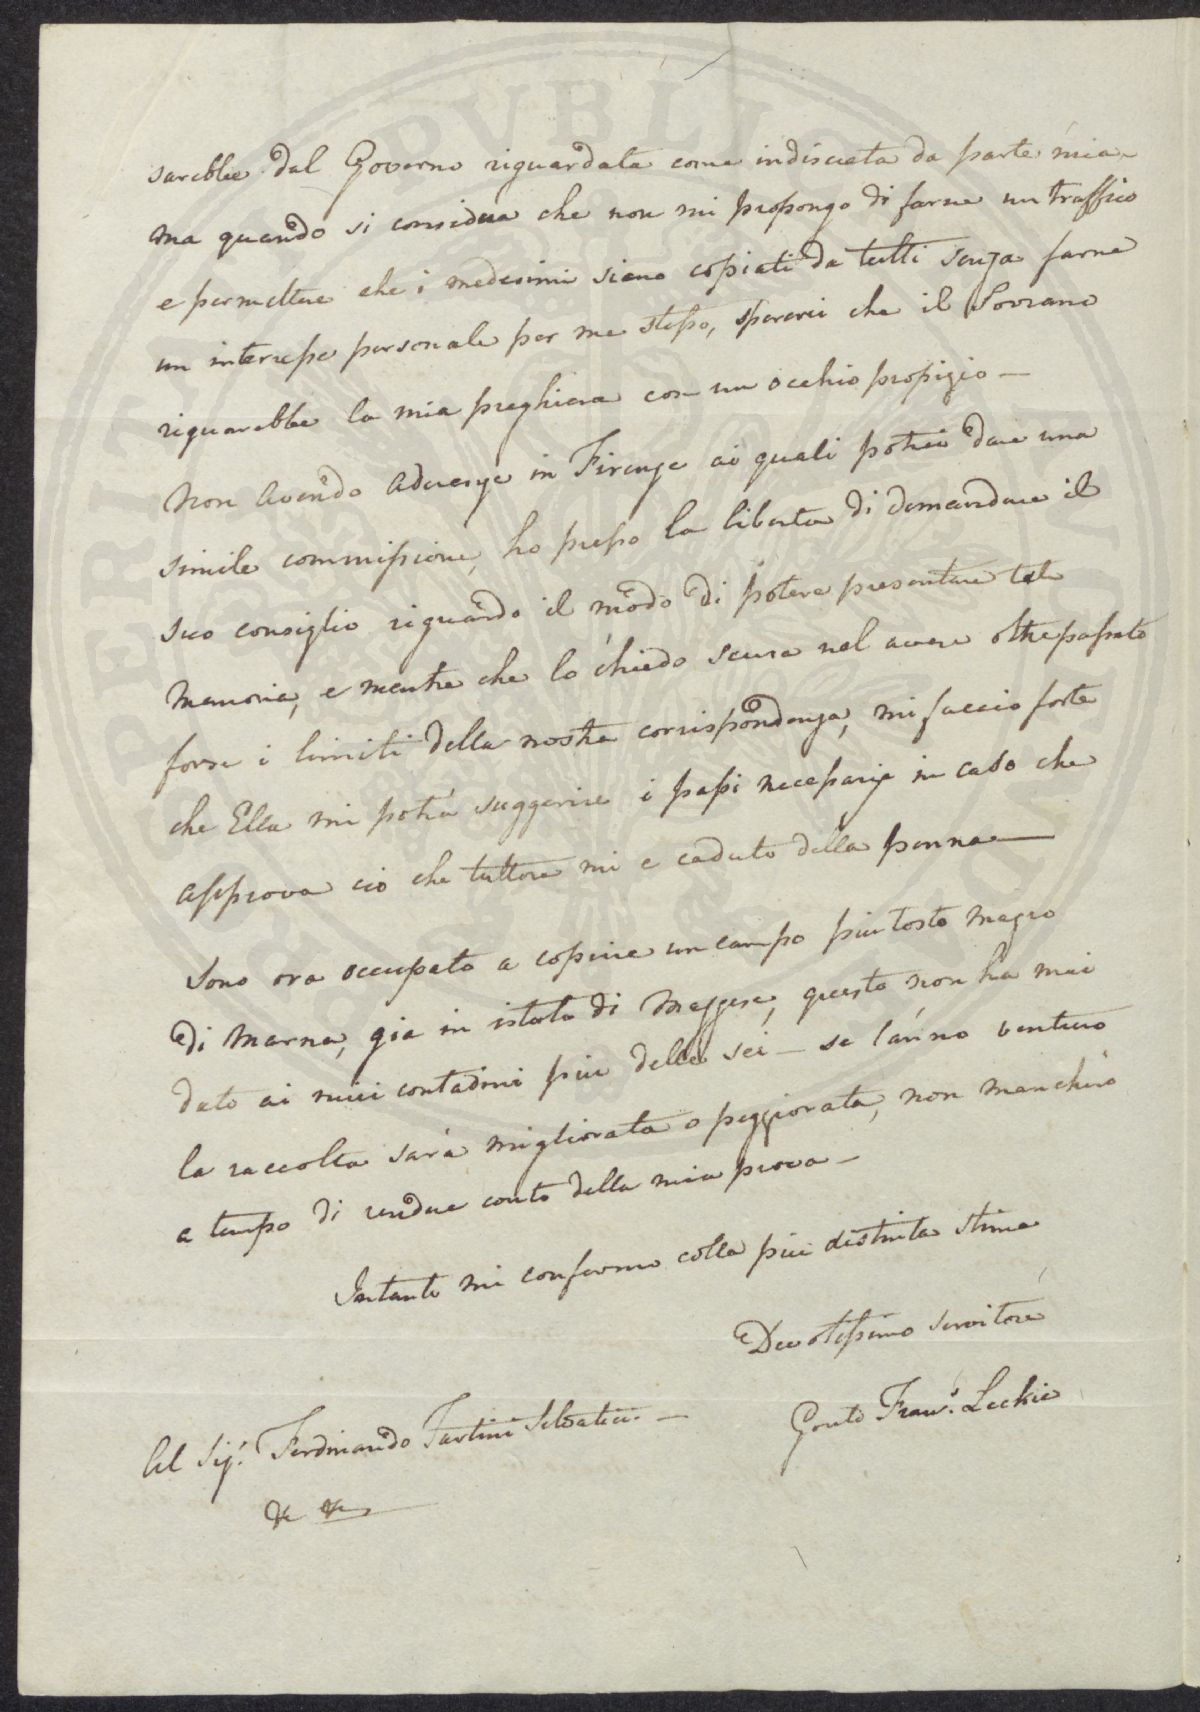 sarebbe dal Governo riguardata come indiscreta da parte mia
ma quando si considera che non mi propongo di farne un traffico
e permettere che i medesimi siano copiati da tutti senza farne
un interesse personale per me stesso, sperarei che il Sovrano
riguarebbe la mia preghiera con un occhio propizio —
Non avendo aderenze in Firenze ai quali potrei dare una
simile commissione, ho preso la liberta di domandare il
suo consiglio riguardo il modo di potere presentare tale
memoria, e mentre che lo chiedo scusa nel avere oltrepassato
forse i limiti della nostra corrispondenza, mi faccio forte
che Ella mi potrà suggerire i passi necessarj in caso che
approva ciò che tuttora mi e caduto della penna —
Sono ora occupato a coprire un campo piu tosto magro
di Marna, gia in istato di Maggese, questo non ha mai
dato ai miei contadini piu delle sei — se l'anno venturo
la raccolta sarà migliorata o peggiorata, non mancherò
a tempo di rendere conto della mia prova —
Intanto mi confermo colla piu distinta stima
Devotissimo servitore
Gould Franc.º Leckie
Al Sig.r Ferdinando Tartini Salvatici —